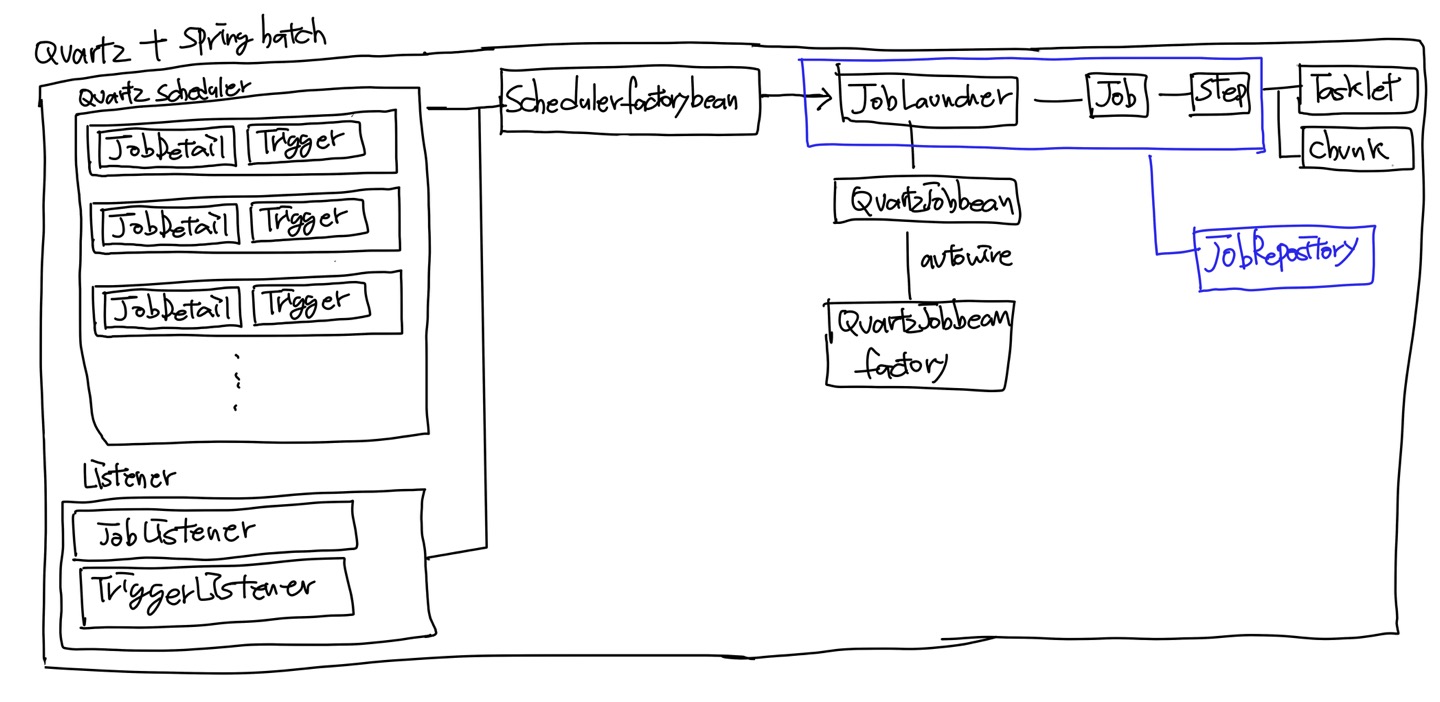 Quartz + Spring batch
Quartz Scheduler
JobDetail Trigger
JobDetail Trigger
JobDetail Trigger
Listener
JobListener
TriggerListener
Schedulerfactorybean
JobLauncher
Job
Step
Tasklet
chunk
QuartzJobbean
autowire
QuartzJobbean
factory
JobRepository